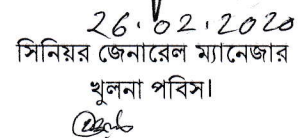 26.02.2020
সিনিয়র জেনারেল ম্যানেজার
খুলনা পবিস।